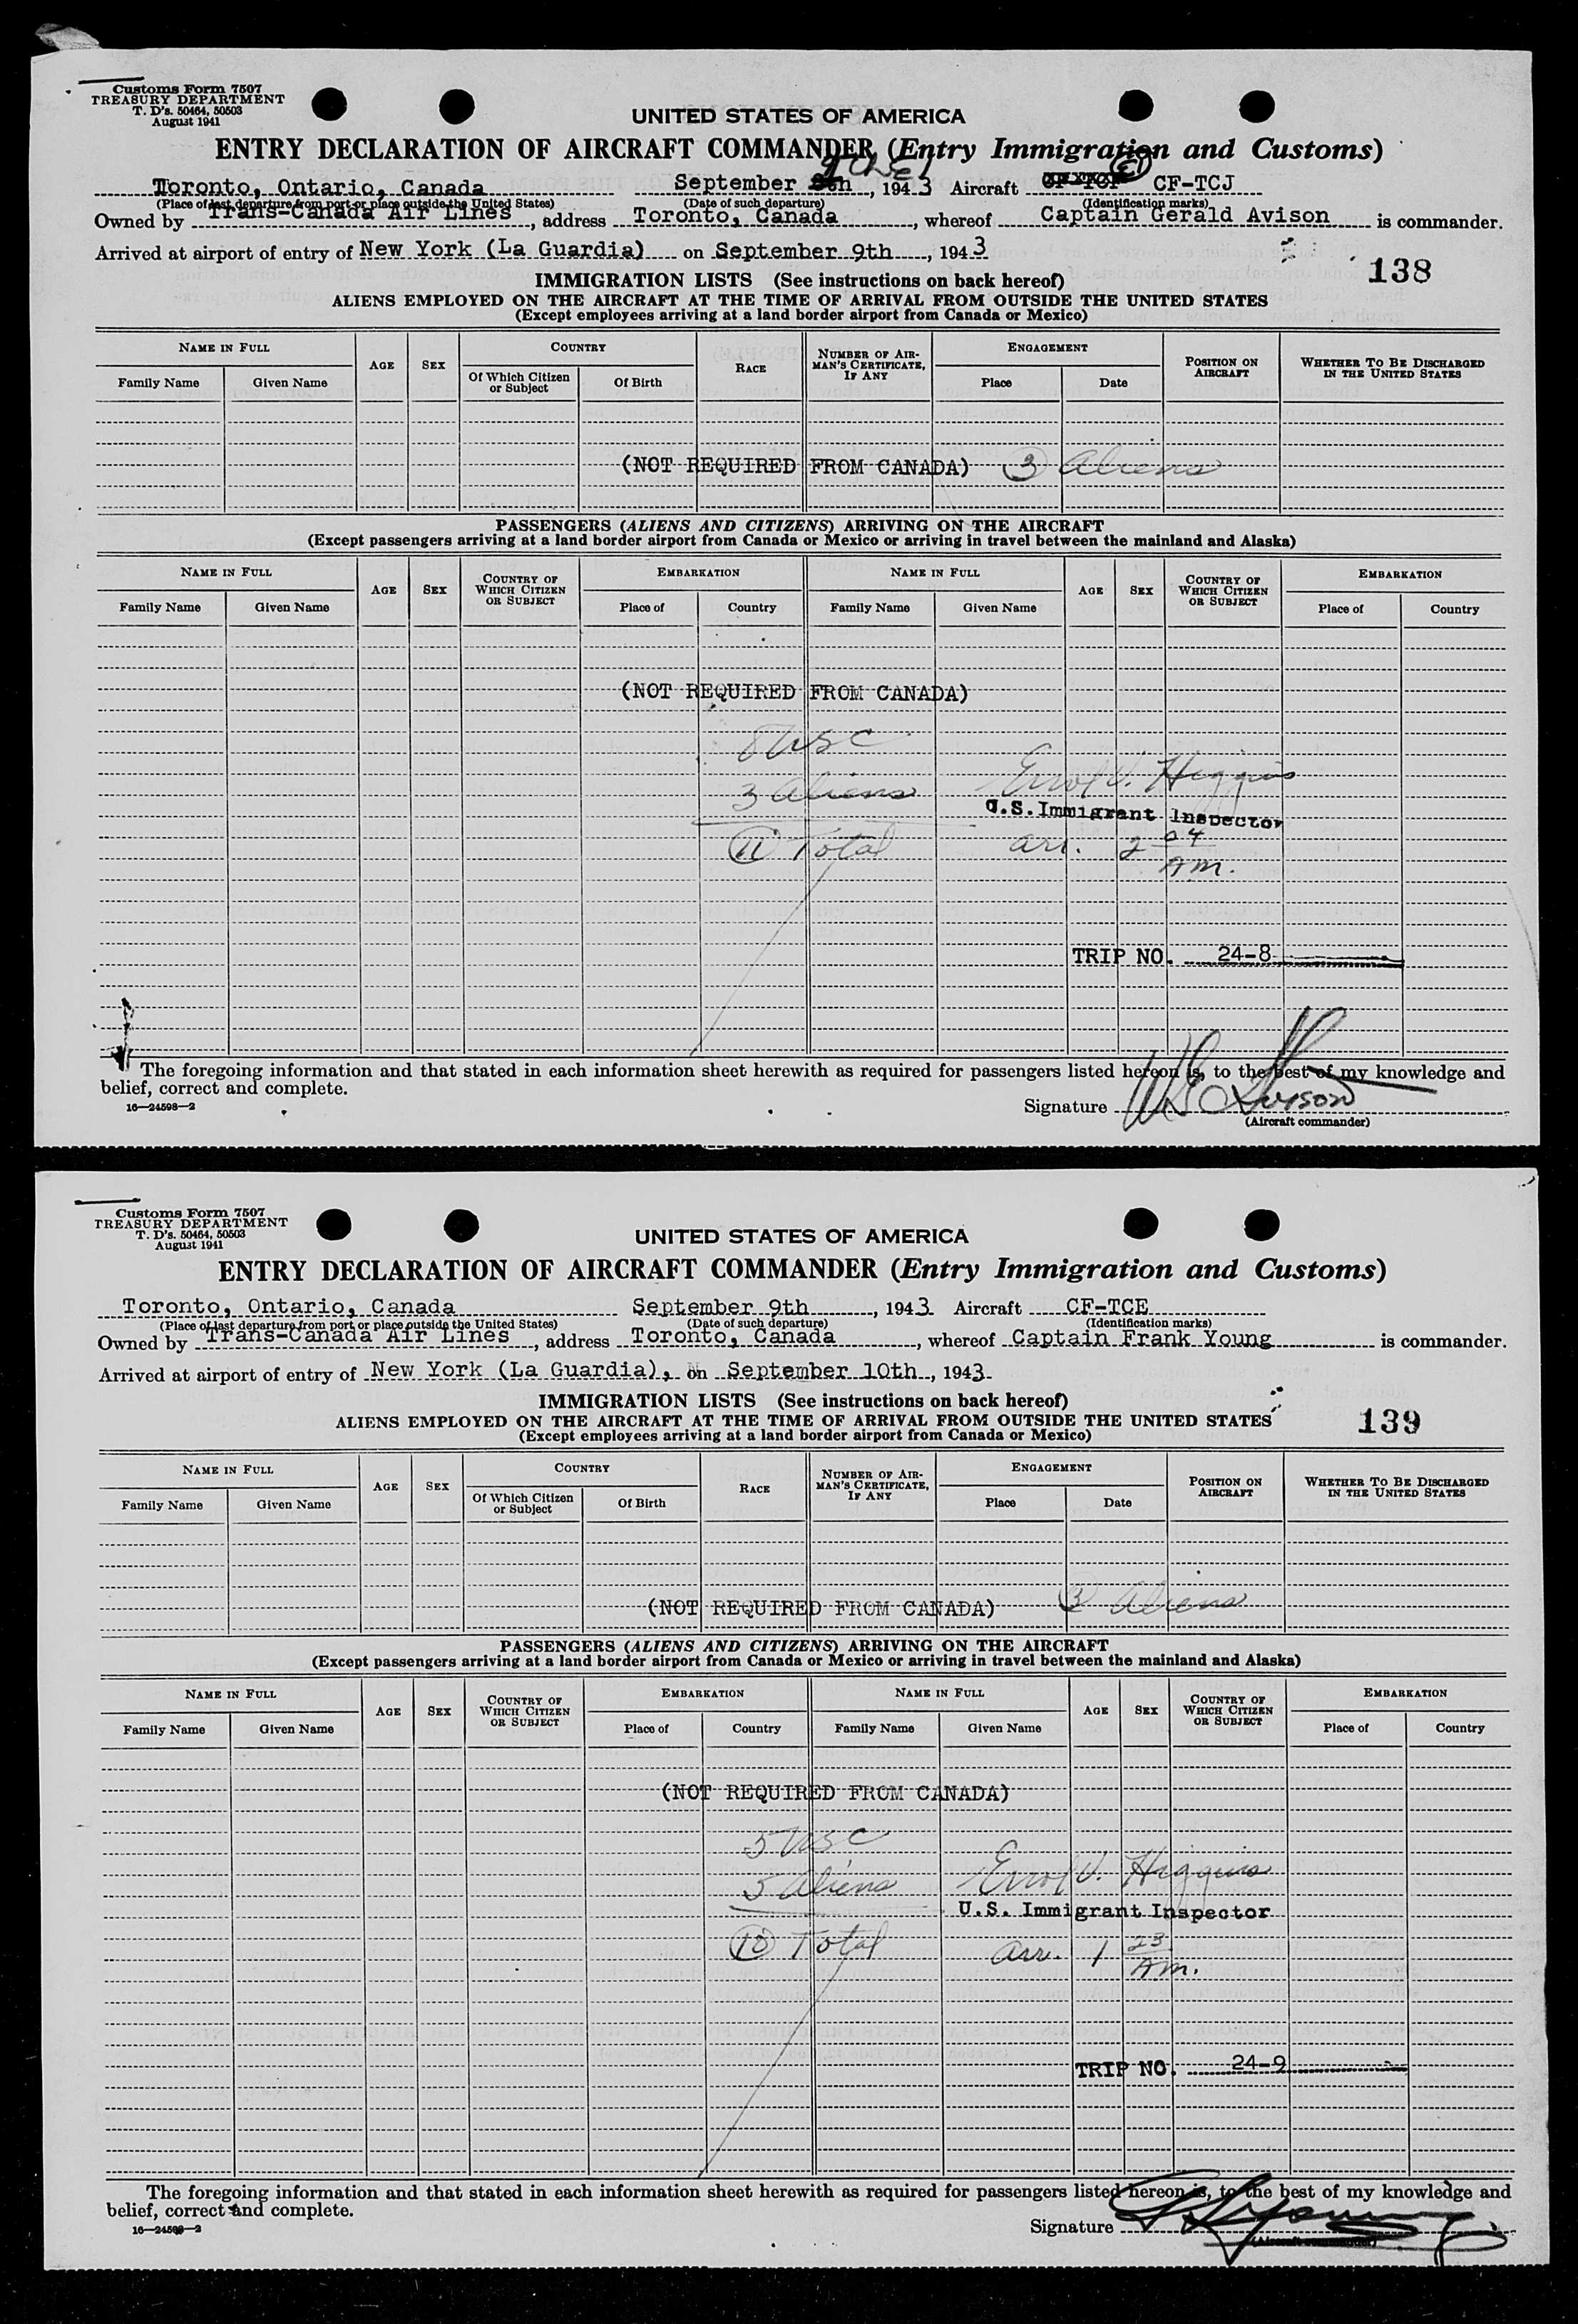 Customs Form 7507
TREASURY DEPARTMENT
T. D's. 50464, 50503
August 1941
UNITED STATES OF AMERICA
ENTRY DECLARATION OF AIRCRAFT COMMANDER (Entry Immigration and Customs)
Toronto, Ontario, Canada September 9th, 1943 Aircraft CF-TCJ
(Place of last departure from port or place outside the United States) (Date of such departure) (Identification marks)
Owned by Trans-Canada Air Lines, address Toronto, Canada, whereof Captain Gerald Avison is commander.
Arrived at airport of entry of New York (La Guardia) on September 9th, 1943
138
IMMIGRATION LISTS (See instructions on back hereof)
ALIENS EMPLOYED ON THE AIRCRAFT AT THE TIME OF ARRIVAL FROM OUTSIDE THE UNITED STATES
(Except employees arriving at a land border airport from Canada or Mexico)
NAME IN FULL AGE SEX COUNTRY RACE NUMBER OF AIRMAN'S CERTIFICATE, IF ANY ENGAGEMENT POSITION ON AIRCRAFT WHETHER TO BE DISCHARGED IN THE UNITED STATES
Family Name Given Name Of Which Citizen or Subject Of Birth Place Date
(NOT REQUIRED FROM CANADA) 3 Aliens
PASSENGERS (ALIENS AND CITIZENS) ARRIVING ON THE AIRCRAFT
(Except passengers arriving at a land border airport from Canada or Mexico or arriving in travel between the mainland and Alaska)
NAME IN FULL AGE SEX COUNTRY OF WHICH CITIZEN OR SUBJECT EMBARKATION NAME IN FULL AGE SEX COUNTRY OF WHICH CITIZEN OR SUBJECT EMBARKATION
Family Name Given Name Place of Country Family Name Given Name Place of Country
(NOT REQUIRED FROM CANADA)
8 USC
3 Aliens Errol V. Higgins
U.S. Immigrant Inspector
11 Total arr. 2 04 AM.
TRIP NO. 24-8
The foregoing information and that stated in each information sheet herewith as required for passengers listed hereon is, to the best of my knowledge and
belief, correct and complete.
16—24598-2
Signature
(Aircraft commander)
Customs Form 7507
TREASURY DEPARTMENT
T. D's. 50464, 50503
August 1941
UNITED STATES OF AMERICA
ENTRY DECLARATION OF AIRCRAFT COMMANDER (Entry Immigration and Customs)
Toronto, Ontario, Canada September 9th, 1943 Aircraft CF-TCE
(Place of last departure from port or place outside the United States) (Date of such departure) (Identification marks)
Owned by Trans-Canada Air Lines, address Toronto, Canada, whereof Captain Frank Young is commander.
Arrived at airport of entry of New York (La Guardia), on September 10th, 1943
139
IMMIGRATION LISTS (See instructions on back hereof)
ALIENS EMPLOYED ON THE AIRCRAFT AT THE TIME OF ARRIVAL FROM OUTSIDE THE UNITED STATES
(Except employees arriving at a land border airport from Canada or Mexico)
NAME IN FULL AGE SEX COUNTRY RACE NUMBER OF AIRMAN'S CERTIFICATE, IF ANY ENGAGEMENT POSITION ON AIRCRAFT WHETHER TO BE DISCHARGED IN THE UNITED STATES
Family Name Given Name Of Which Citizen or Subject Of Birth Place Date
(NOT REQUIRED FROM CANADA) 3 Aliens
PASSENGERS (ALIENS AND CITIZENS) ARRIVING ON THE AIRCRAFT
(Except passengers arriving at a land border airport from Canada or Mexico or arriving in travel between the mainland and Alaska)
NAME IN FULL AGE SEX COUNTRY OF WHICH CITIZEN OR SUBJECT EMBARKATION NAME IN FULL AGE SEX COUNTRY OF WHICH CITIZEN OR SUBJECT EMBARKATION
Family Name Given Name Place of Country Family Name Given Name Place of Country
(NOT REQUIRED FROM CANADA)
5 USC
5 Aliens Errol V. Higgins
U.S. Immigrant Inspector
10 Total arr. 1 23 AM.
TRIP NO. 24-9
The foregoing information and that stated in each information sheet herewith as required for passengers listed hereon is, to the best of my knowledge and
belief, correct and complete.
16—24598-2
Signature
(Aircraft commander)